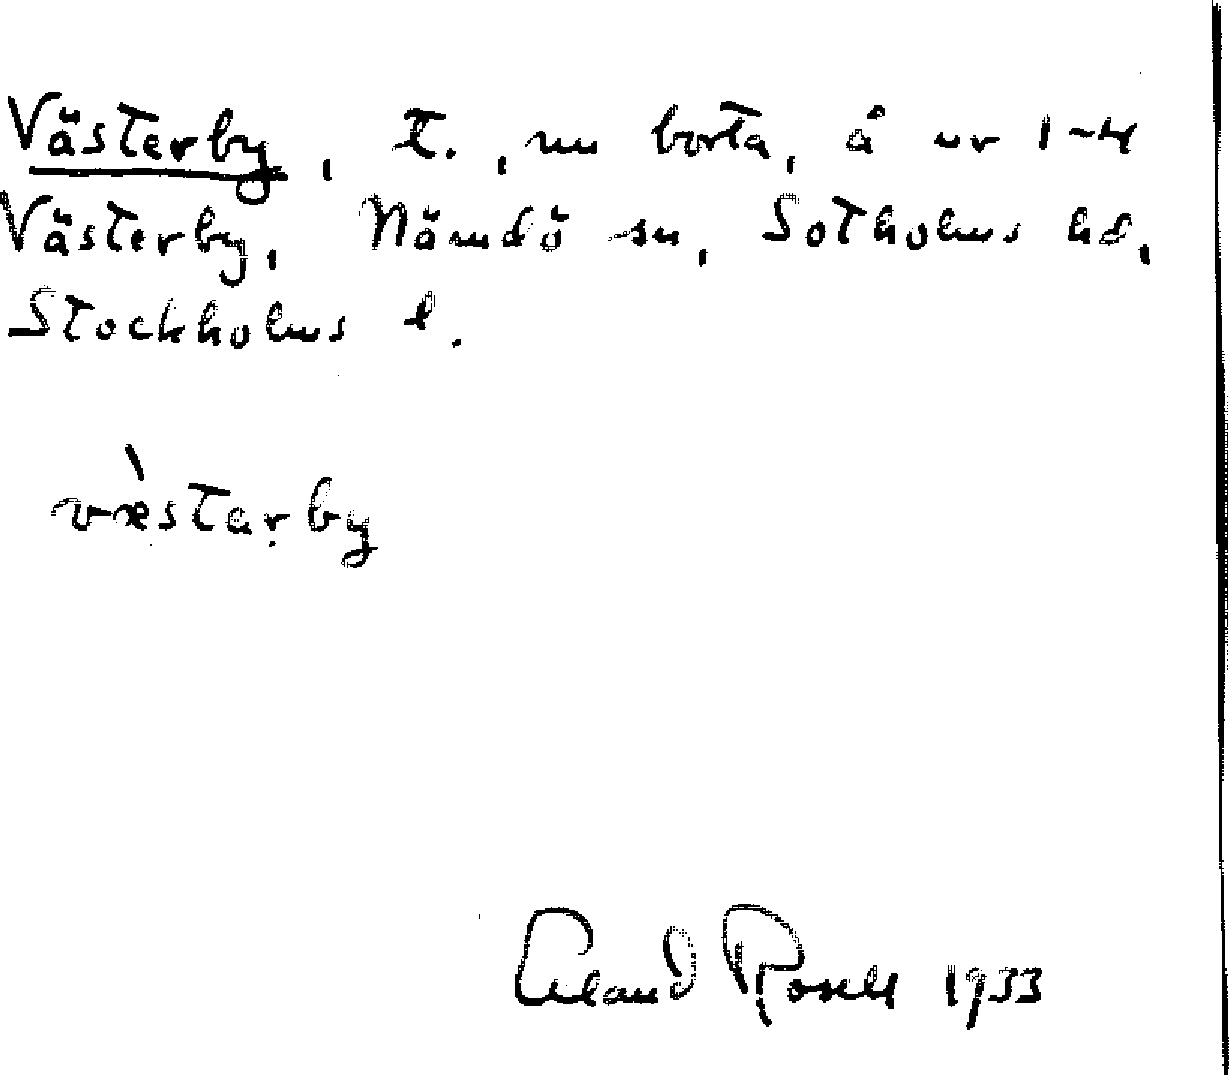 Västerby, t., nu borta, å nr 1-4
Västerby, Nämdö sn, Sotholms hd,
Stockholms l.
væ̀starby
Erland Rosell 1933